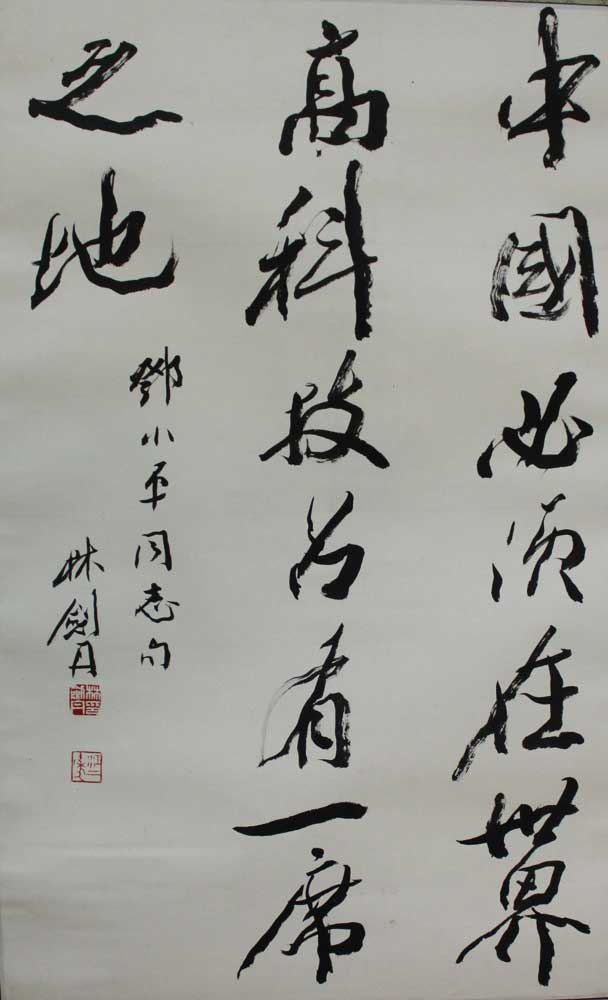 中國必須在世界
高科技占有一席
之地
鄧小平同志句
林劍丹